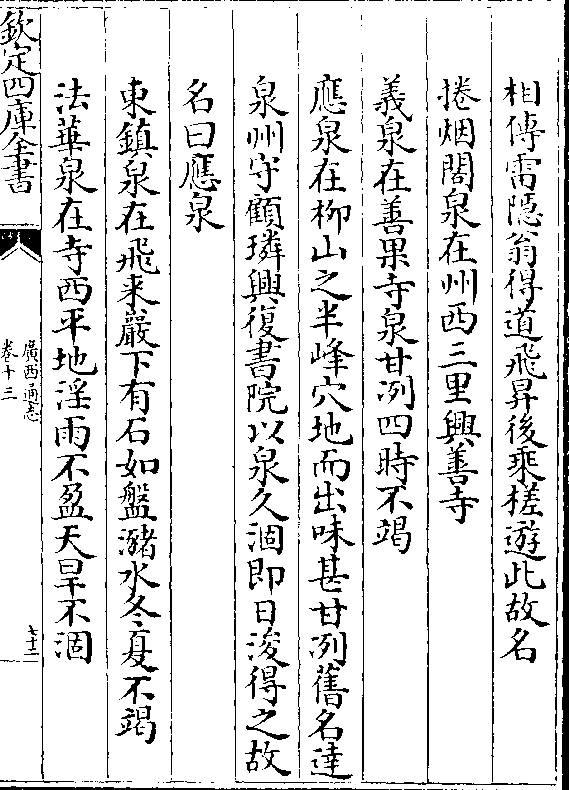 相傳雷隠翁得道飛昇後乘槎遊此故名
捲烟閣泉在州西三里興善寺
義泉在善果寺泉甘冽四時不竭
應泉在柳山之半峰穴地而出味甚甘冽舊名達
泉州守顧璘興復書院以泉久涸即日浚得之故
名曰應泉
東鎮泉在飛来巖下有石如盤瀦水冬夏不竭
法華泉在寺西平地淫雨不盈天旱不涸
欽定四庫全書
廣西通志
卷十三
七十二